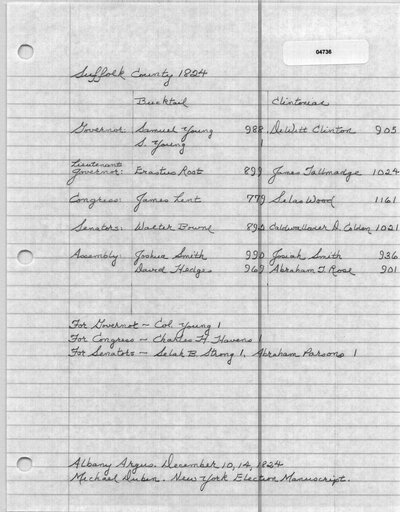 04736
Suffolk County 1824
Bucktail Clintonian
Governor: Samuel Young 988 DeWitt Clinton 905
S. Young 1
Lieutenant
Governor: Erastus Root 899 James Tallmadge 1024
Congress: James Lent 779 Selas Wood 1161
Senators: Walter Bowne 890 Caldwallader D. Colden 1021
Assembly: Joshua Smith 990 Josiah Smith 936
David Hedges 969 Abraham T. Rose 901
For Governor - Col. Young 1
For Congress - Charles H. Havens 1
For Senators - Selah B. Strong 1, Abraham Parsons 1
Albany Argus. December 10, 14, 1824
Michael Dubin. New York Election Manuscript.